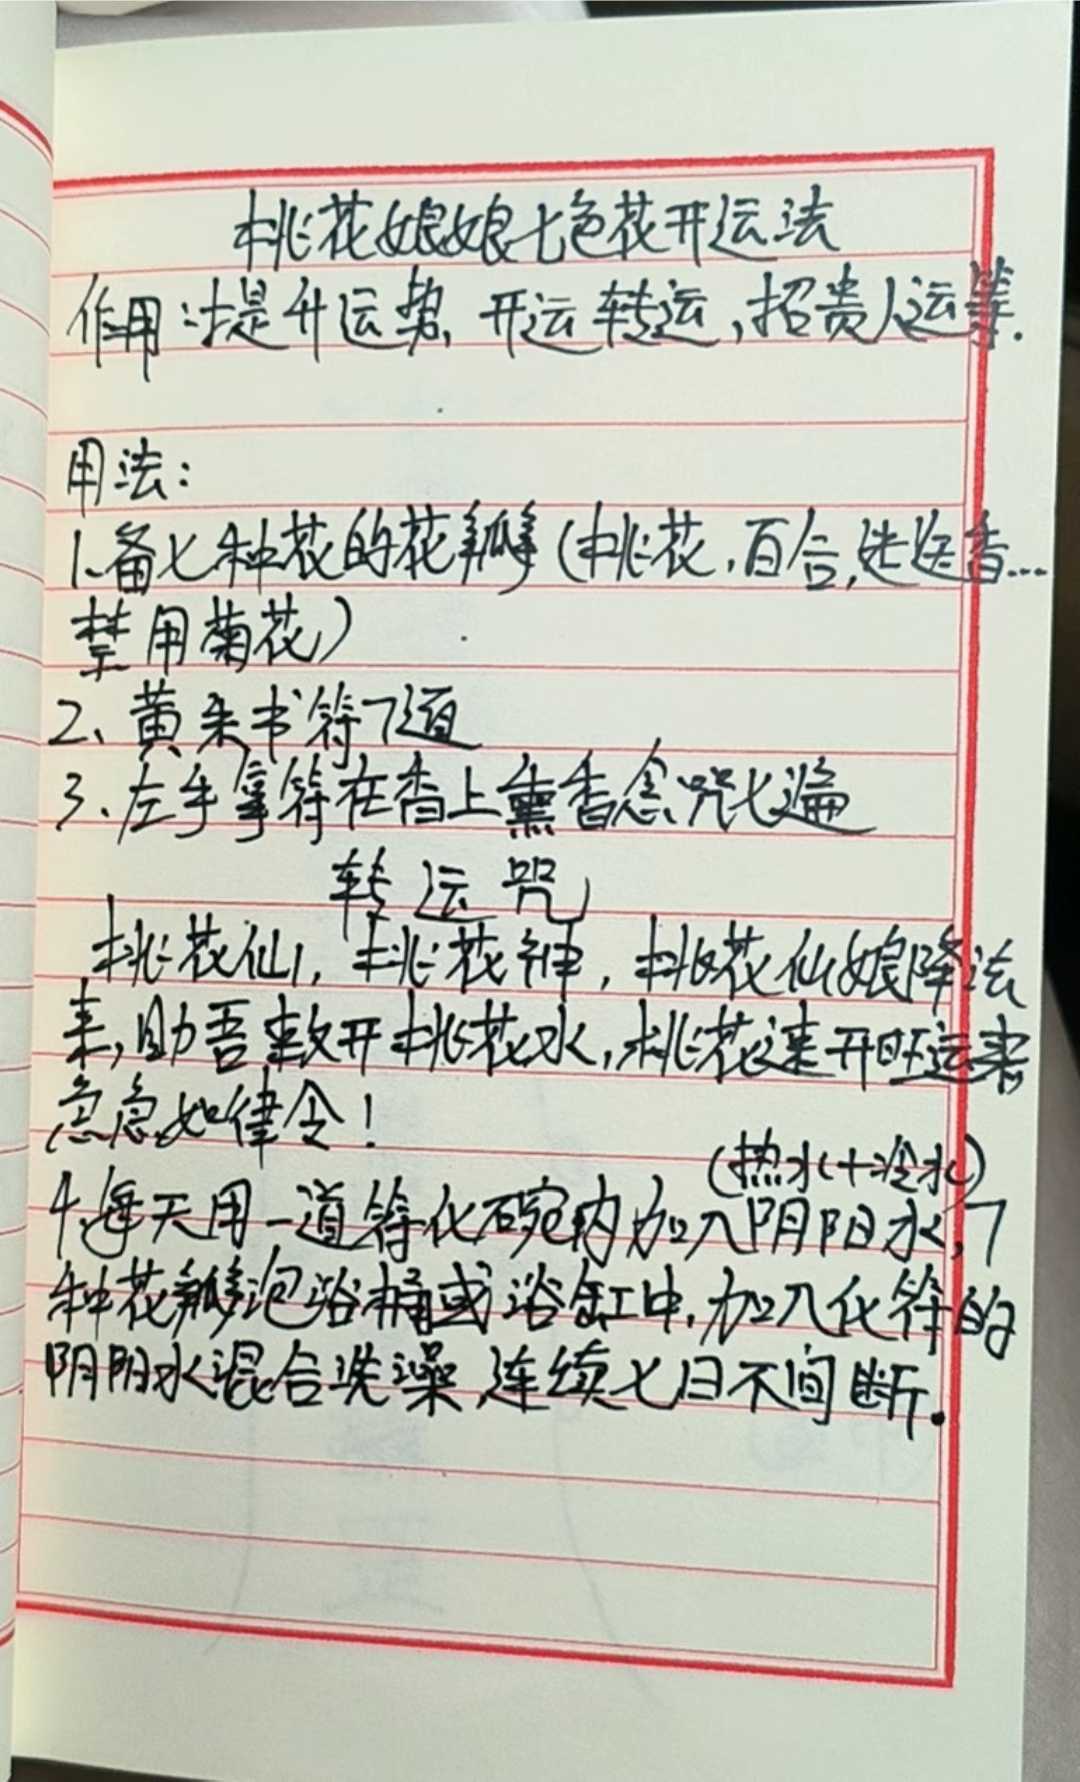 桃花娘娘七色花开运法
作用:提升运势,开运转运,招贵人运等.
用法:
1.备七种花的花瓣(桃花,百合,迷迭香...
禁用菊花)
2、黄朱书符7道
3、左手拿符在香上熏香念咒七遍
转运咒
桃花仙,桃花神,桃花仙娘降法
来,助吾敕开桃花水,桃花速开旺运来
急急如律令!
(热水+冷水)
4、每天用一道符化碗内加入阴阳水,7
种花瓣泡浴桶或浴缸中,加入化符的
阴阳水混合洗澡,连续七日不间断.